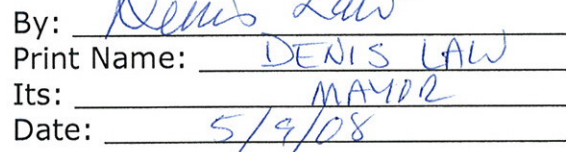 By: Denis Law
Print Name: DENIS LAW
Its: MAYOR
Date: 5/9/08